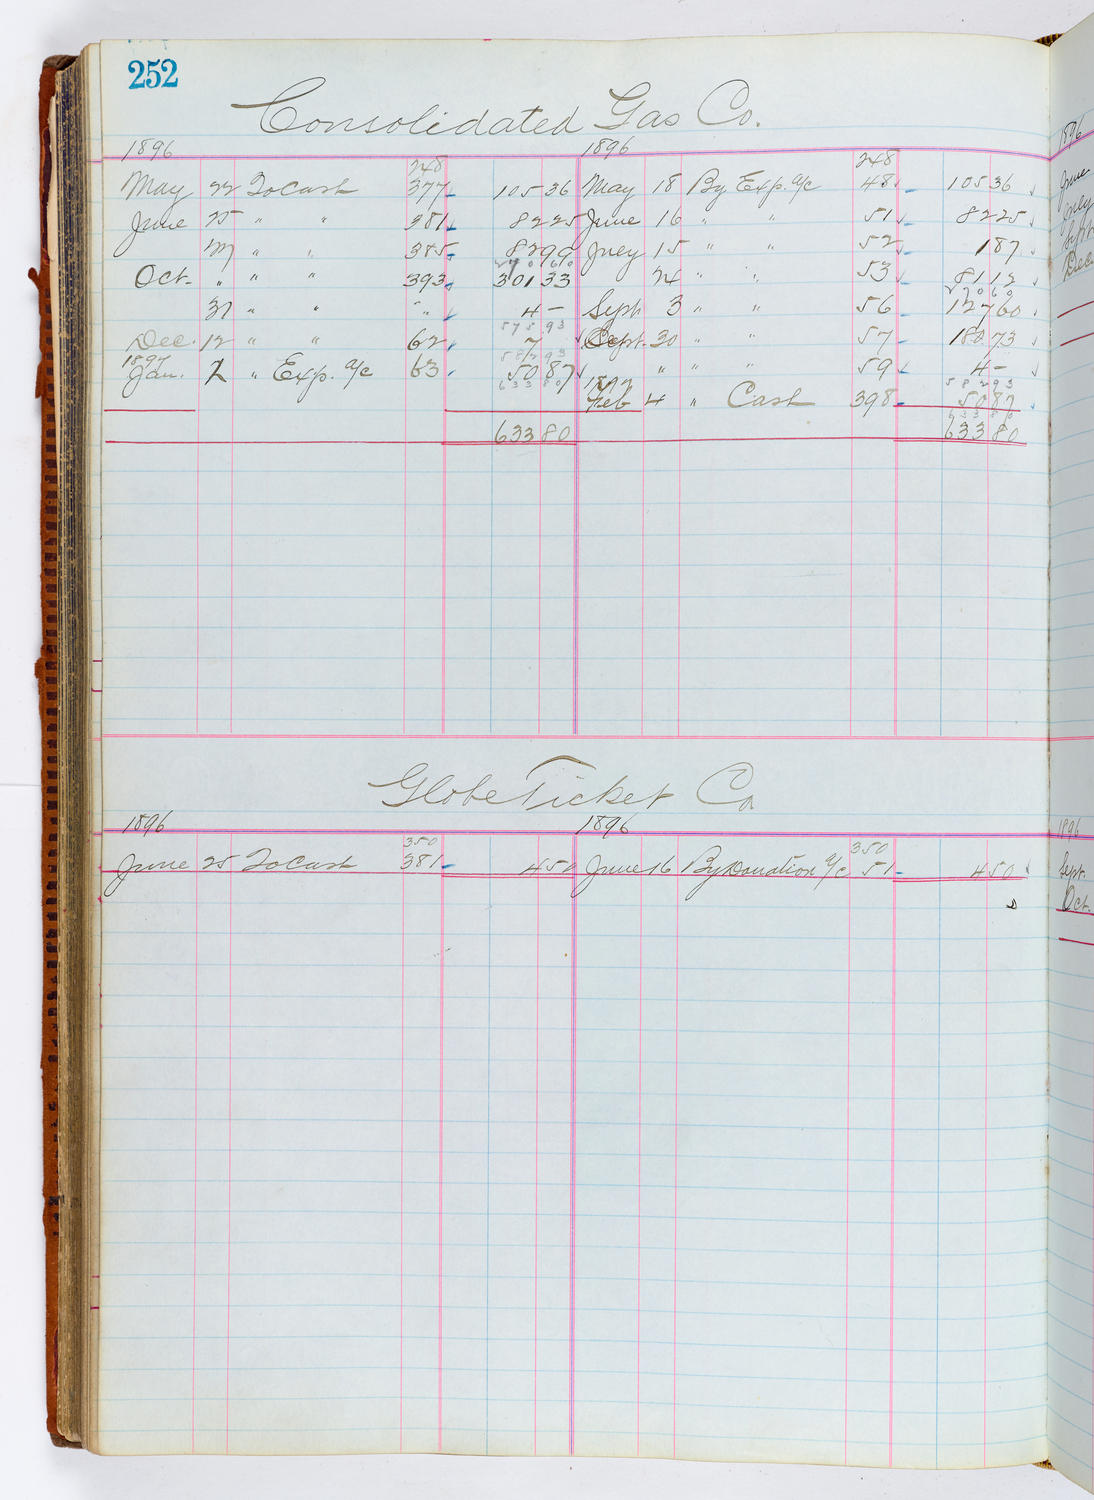 252
Consolidated Gas Co.
1896 1896
248 248
May 22 To Cash 377 105 36 May 18 By Exp. a/c 48 105 36
June 25 " " 381 82 25 June 16 " " 51 82 25
27 " " 385 82 99 July 15 " " 52 1 87
270 60
Oct. " " " 393 301 33 24 " " 53 81 12
270 60
31 " " " 4 - Sept 3 " " 56 127 60
575 93
Dec. 12 " " 62 7 Sept. 30 " " 57 180 73
582 93
1897
Jan. 2 " Exp. a/c 63 50 87 " " " 59 4 -
633 80 582 93
1897
Feb 4 " Cash 398 50 87
633 80
633 80 633 80
Globe Ticket Co
1896 1896
350 350
June 25 To Cash 381 4 50 June 16 By Donation a/c 51 4 50
1896
June
July
Sept
Dec.
1896
Sept.
Oct.